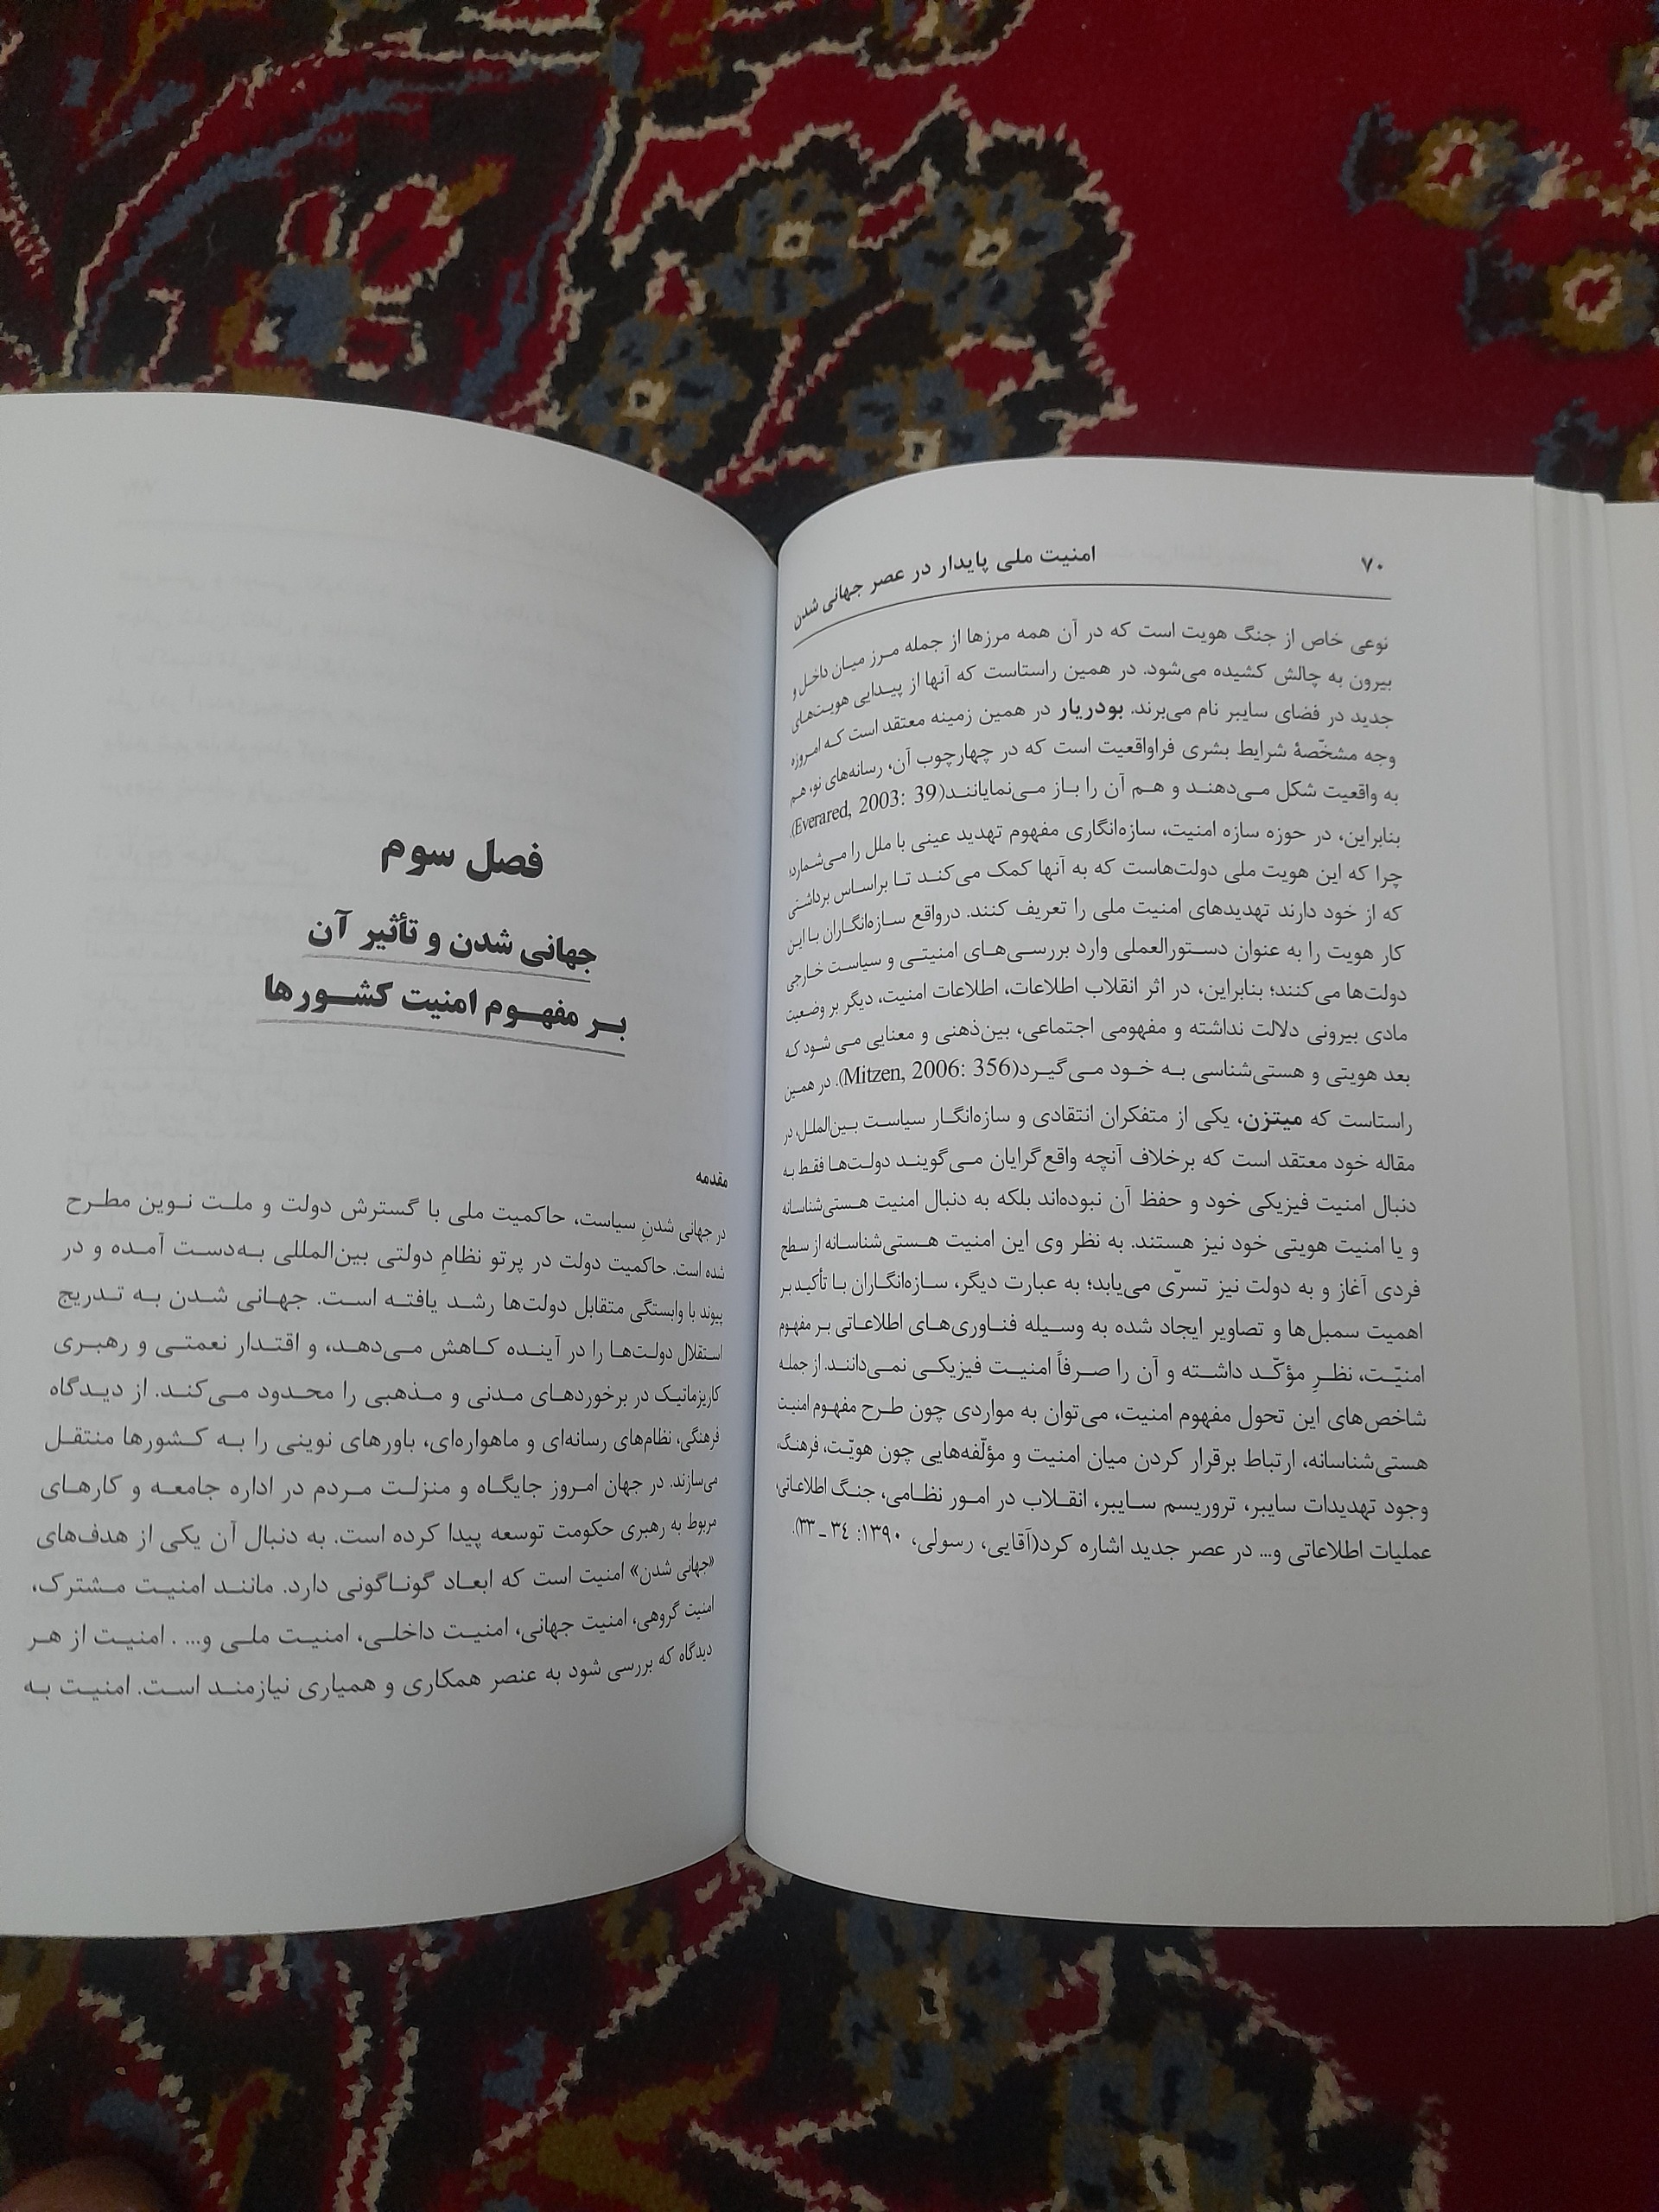 ۷۰
امنیت ملی پایدار در عصر جهانی شدن
نوعی خاص از جنگ هویت است که در آن همه مرزها از جمله مرز میان داخل و
بیرون به چالش کشیده می‌شود. در همین راستاست که آنها از پیدایی هویت‌های
جدید در فضای سایبر نام می‌برند. بودریار در همین زمینه معتقد است که امروزه
وجه مشخّصهٔ شرایط بشری فراواقعیت است که در چهارچوب آن، رسانه‌های نو، هم
به واقعیت شکل می‌دهند و هم آن را باز می‌نمایانند(Everared, 2003: 39).
بنابراین، در حوزه سازه امنیت، سازه‌انگاری مفهوم تهدید عینی با ملل را می‌شمارد؛
چرا که این هویت ملی دولت‌هاست که به آنها کمک می‌کند تا براساس برداشتی
که از خود دارند تهدیدهای امنیت ملی را تعریف کنند. درواقع سازه‌انگاران با این
کار هویت را به عنوان دستورالعملی وارد بررسی‌های امنیتی و سیاست خارجی
دولت‌ها می‌کنند؛ بنابراین، در اثر انقلاب اطلاعات، اطلاعات امنیت، دیگر بر وضعیت
مادی بیرونی دلالت نداشته و مفهومی اجتماعی، بین‌ذهنی و معنایی می شود که
بعد هویتی و هستی‌شناسی به خود می‌گیرد(Mitzen, 2006: 356). در همین
راستاست که میتزن، یکی از متفکران انتقادی و سازه‌انگار سیاست بین‌الملل، در
مقاله خود معتقد است که برخلاف آنچه واقع‌گرایان می‌گویند دولت‌ها فقط به
دنبال امنیت فیزیکی خود و حفظ آن نبوده‌اند بلکه به دنبال امنیت هستی‌شناسانه
و یا امنیت هویتی خود نیز هستند. به نظر وی این امنیت هستی‌شناسانه از سطح
فردی آغاز و به دولت نیز تسرّی می‌یابد؛ به عبارت دیگر، سازه‌انگاران با تأکید بر
اهمیت سمبل‌ها و تصاویر ایجاد شده به وسیله فناوری‌های اطلاعاتی بر مفهوم
امنیّت، نظرِ مؤکّد داشته و آن را صرفاً امنیت فیزیکی نمی‌دانند. از جمله
شاخص‌های این تحول مفهوم امنیت، می‌توان به مواردی چون طرح مفهوم امنیت
هستی‌شناسانه، ارتباط برقرار کردن میان امنیت و مؤلّفه‌هایی چون هویّت، فرهنگ،
وجود تهدیدات سایبر، تروریسم سایبر، انقلاب در امور نظامی، جنگ اطلاعاتی،
عملیات اطلاعاتی و... در عصر جدید اشاره کرد(آقایی، رسولی، ۱۳۹۰: ۳۴ ـ ۳۳).
فصل سوم
جهانی شدن و تأثیر آن
بر مفهوم امنیت کشورها
مقدمه
در جهانی شدنِ سیاست، حاکمیت ملی با گسترش دولت و ملت نوین مطرح
شده است. حاکمیت دولت در پرتو نظامِ دولتی بین‌المللی به‌دست آمده و در
پیوند با وابستگی متقابل دولت‌ها رشد یافته است. جهانی شدن به تدریج
استقلال دولت‌ها را در آینده کاهش می‌دهد، و اقتدار نعمتی و رهبری
کاریزماتیک در برخوردهای مدنی و مذهبی را محدود می‌کند. از دیدگاه
فرهنگی، نظام‌های رسانه‌ای و ماهواره‌ای، باورهای نوینی را به کشورها منتقل
می‌سازند. در جهان امروز جایگاه و منزلت مردم در اداره جامعه و کارهای
مربوط به رهبری حکومت توسعه پیدا کرده است. به دنبال آن یکی از هدف‌های
«جهانی شدن» امنیت است که ابعاد گوناگونی دارد. مانند امنیت مشترک،
امنیت گروهی، امنیت جهانی، امنیت داخلی، امنیت ملی و... . امنیت از هر
دیدگاه که بررسی شود به عنصر همکاری و همیاری نیازمند است. امنیت به